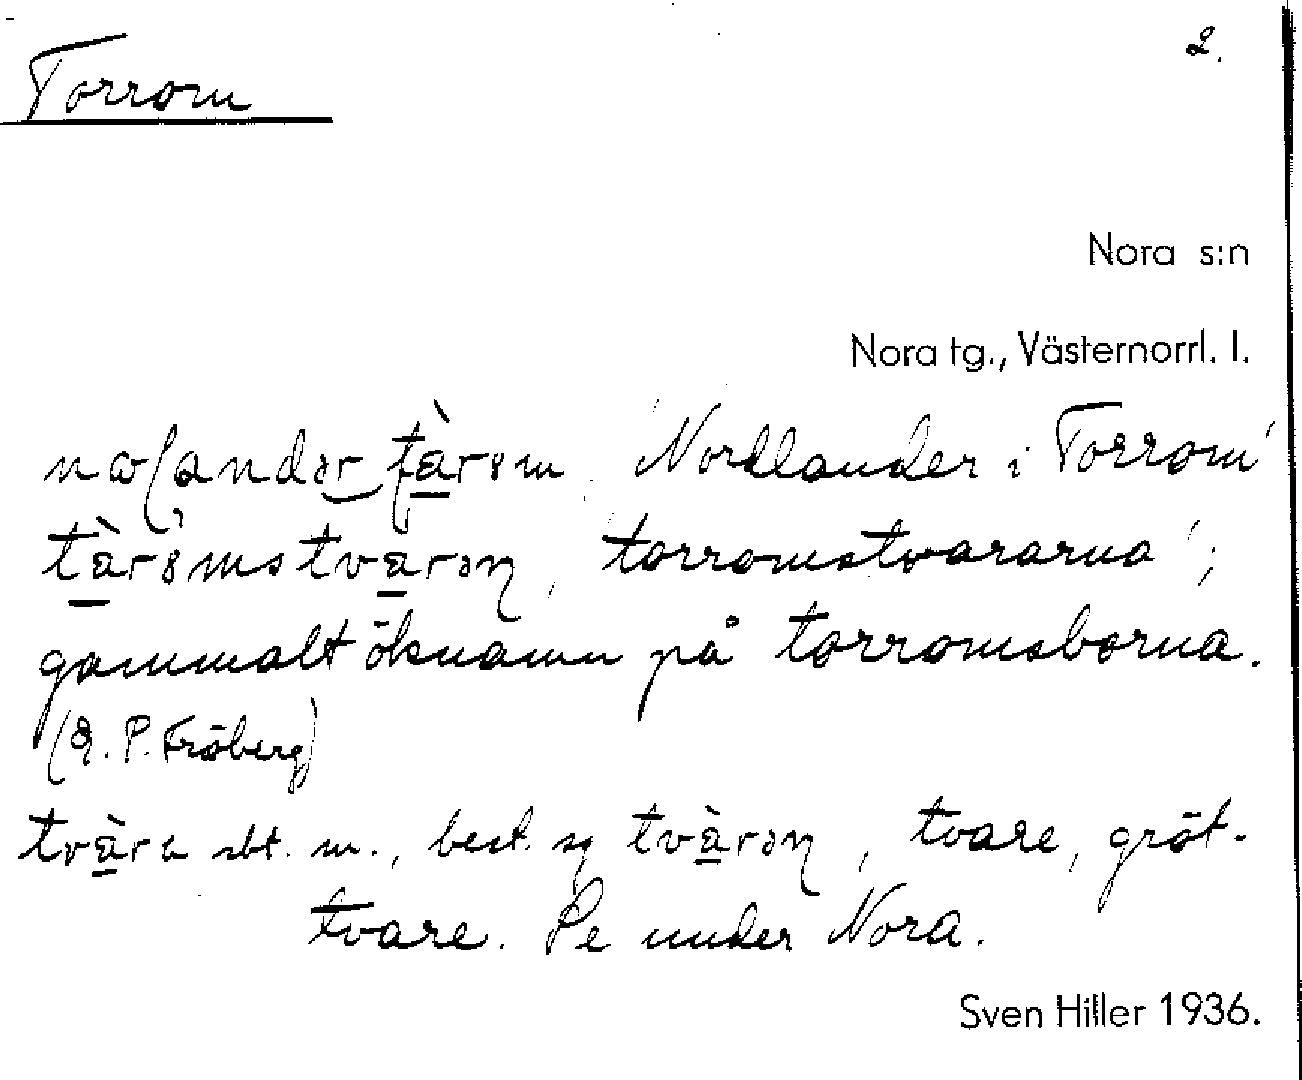 2.
Torrom
Nora s:n
Nora tg., Västernorrl. l.
'Nordlander i Torrom'
'torromstvararna';
gammalt öknamn på torromsborna.
P. Fröberg)
tvàra sbt. m., best. sg tvàrən, tvare, gröt-
tvare. Se under Nora.
Sven Hiller 1936.